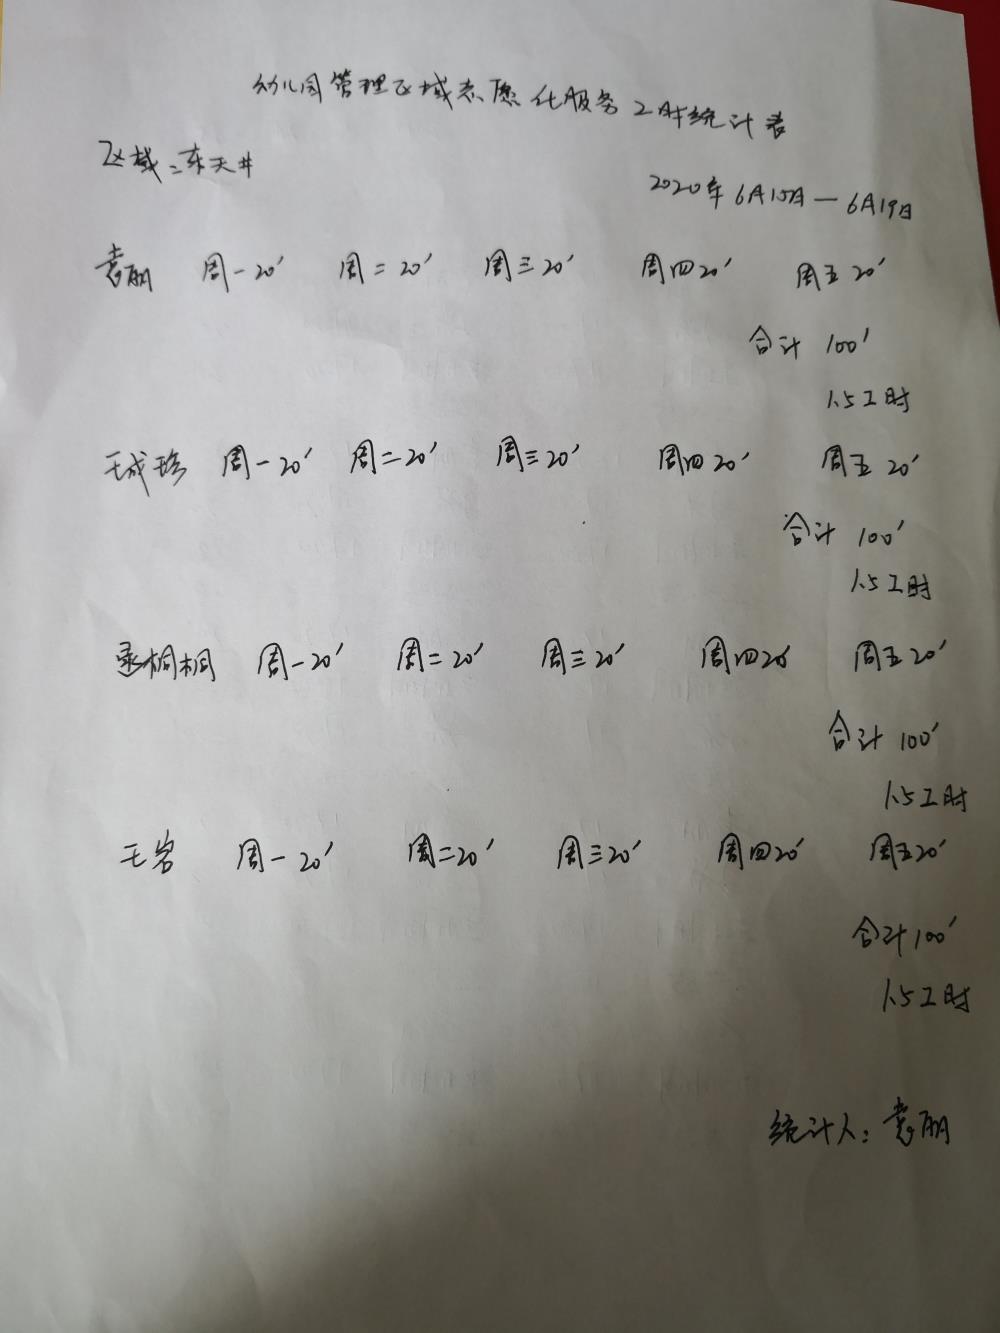 幼儿园管理区域志愿化服务工时统计表
区域：东天井
2020年6月15日—6月19日
袁丽 周一20′ 周二20′ 周三20′ 周四20′ 周五20′
合计 100′
1.5工时
王成珍 周一20′ 周二20′ 周三20′ 周四20′ 周五20′
合计 100′
1.5工时
桐桐 周一20′ 周二20′ 周三20′ 周四20′ 周五20′
合计 100′
1.5工时
王岩 周一20′ 周二20′ 周三20′ 周四20′ 周五20′
合计100′
1.5工时
统计人：袁丽